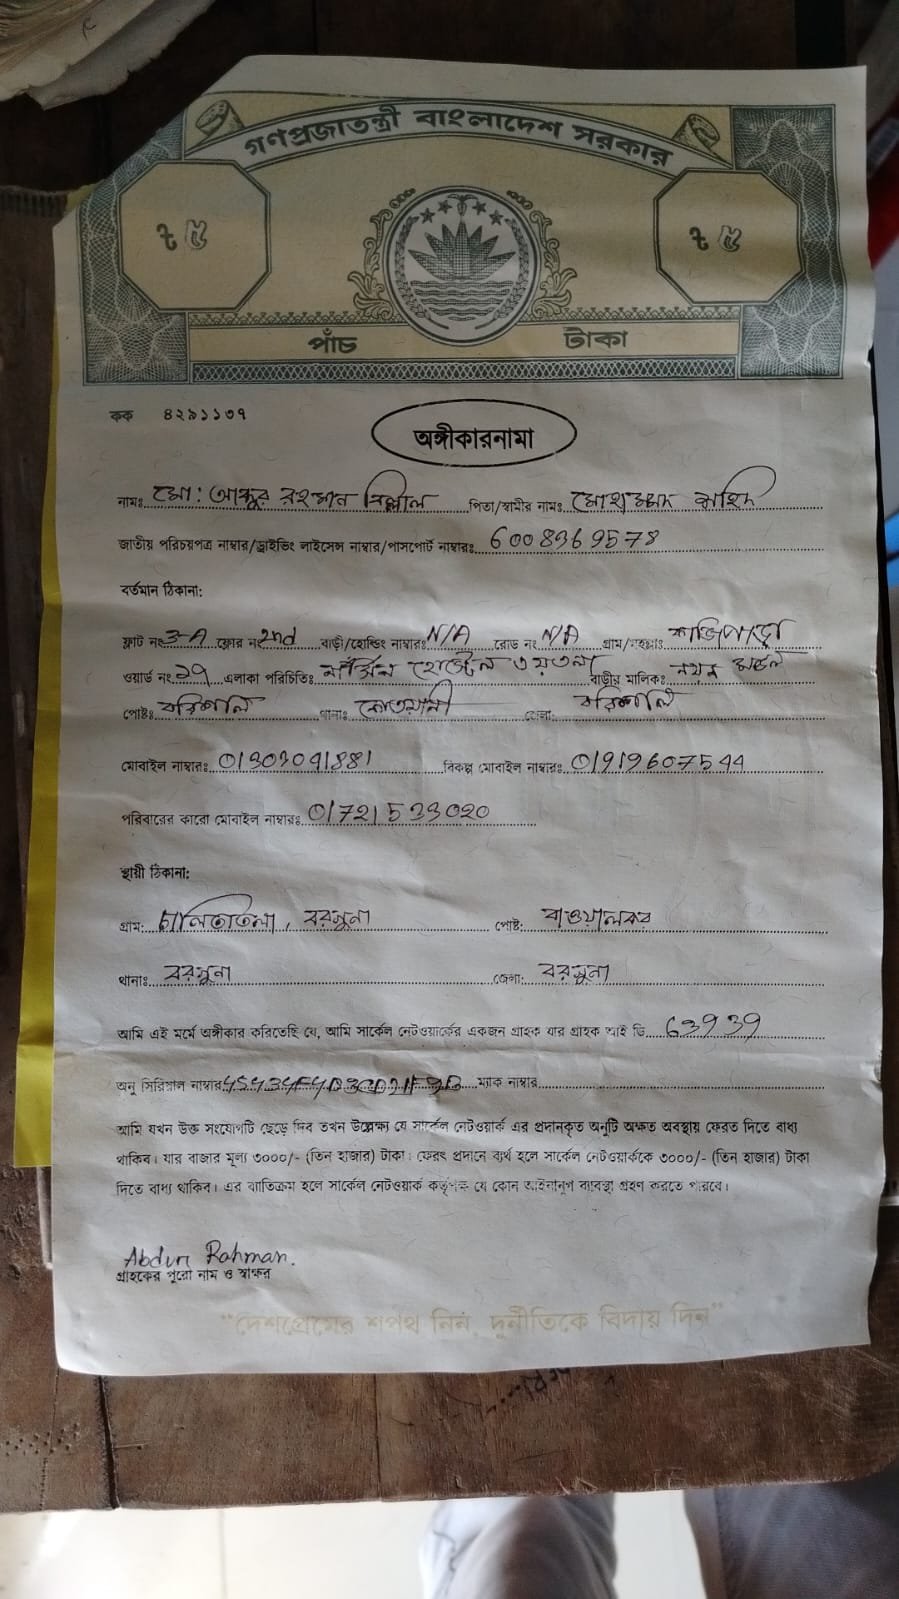 গণপ্রজাতন্ত্রী বাংলাদেশ সরকার
৳ ৫ ৳ ৫
পাঁচ টাকা
কক ৪২৯১১৩৭
অঙ্গীকারনামা
নামঃ মো: আব্দুর রহমান পিতা/স্বামীর নামঃ মোহাম্মদ
জাতীয় পরিচয়পত্র নাম্বার/ড্রাইভিং লাইসেন্স নাম্বার/পাসপোর্ট নাম্বারঃ
বর্তমান ঠিকানা:
ফ্লাট নং 3-A ফ্লোর নং 2nd বাড়ী/হোল্ডিং নাম্বারঃ N/A রোড নং N/A গ্রাম/মহল্লাঃ কাজিপাড়া
ওয়ার্ড নং এলাকা পরিচিতিঃ হোস্টেল বাড়ীর মালিকঃ
পোষ্টঃ বরিশাল থানাঃ কোতয়ালী জেলা: বরিশাল
মোবাইল নাম্বারঃ বিকল্প মোবাইল নাম্বারঃ 01919607544
পরিবারের কারো মোবাইল নাম্বারঃ 01721533020
স্থায়ী ঠিকানা:
গ্রাম: বরগুনা পোষ্ট:
থানাঃ বরগুনা জেলা: বরগুনা
আমি এই মর্মে অঙ্গীকার করিতেছি যে, আমি সার্কেল নেটওয়ার্কের একজন গ্রাহক যার গ্রাহক আই ডি 63939
অনু সিরিয়াল নাম্বার ম্যাক নাম্বার
আমি যখন উক্ত সংযোগটি ছেড়ে দিব তখন উল্লেক্ষ্য যে সার্কেল নেটওয়ার্ক এর প্রদানকৃত অনুটি অক্ষত অবস্থায় ফেরত দিতে বাধ্য
থাকিব। যার বাজার মূল্য ৩০০০/- (তিন হাজার) টাকা। ফেরৎ প্রদানে ব্যর্থ হলে সার্কেল নেটওয়ার্ককে ৩০০০/- (তিন হাজার) টাকা
দিতে বাধ্য থাকিব। এর ব্যাতিক্রম হলে সার্কেল নেটওয়ার্ক কর্তৃপক্ষ যে কোন আইনানুগ ব্যবস্থা গ্রহণ করতে পারবে।
Abdur Rahman.
গ্রাহকের পুরো নাম ও স্বাক্ষর
"দেশপ্রেমের শপথ নিন, দুর্নীতিকে বিদায় দিন"